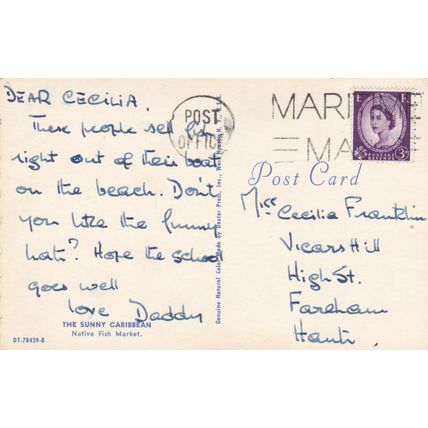 DEAR CECILIA,
These people sell fish
right out of their boat
on the beach. Don't
you like the funny
hats? Hope the school
goes well
love Daddy
THE SUNNY CARIBBEAN
Native Fish Market.
DT-78439-B
Genuine Natural Color Made by Dexter Press, Inc., West Nyack, N. Y., U.S.A.
POST
OFFIC
MARI
MA
E R
3D
Post Card
Miss Cecilia Franklin
Vicars Hill
High St.
Fareham
Hants.